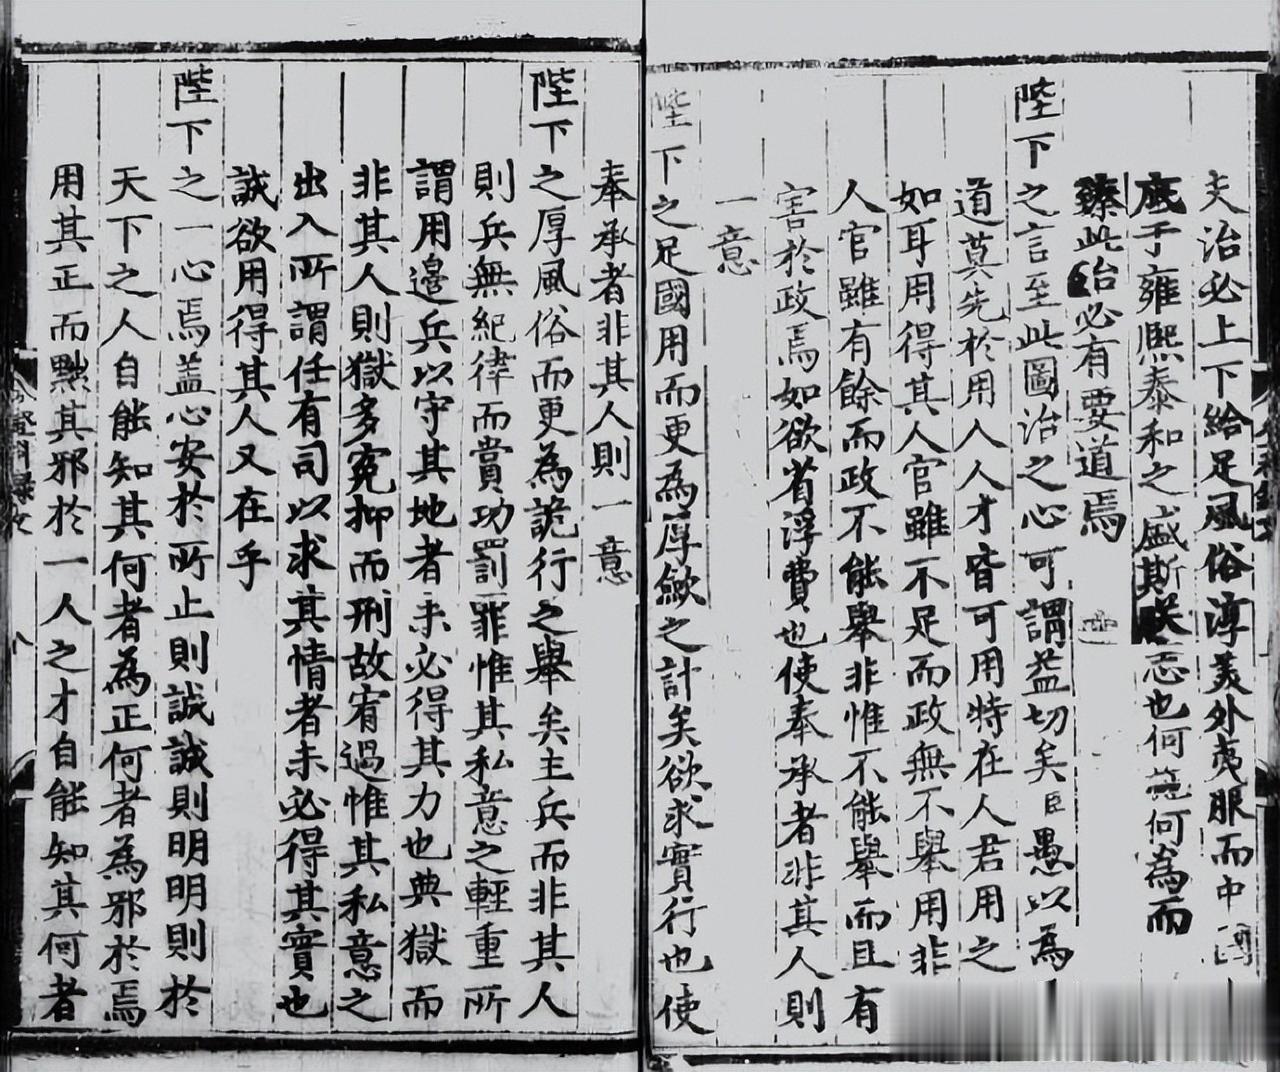 夫治必上下給足風俗淳美外夷服而中國
底于雍熙泰和之盛斯朕志也何施何為而
臻此治必有要道焉
陛下之言至此圖治之心可謂益切矣臣愚以為
道莫先於用人人才皆可用特在人君用之
如耳用得其人官雖不足而政無不舉用非
人官雖有餘而政不能舉非惟不能舉而且有
害於政焉如欲省浮費也使奉承者非其人則
一意
陛下之足國用而更為厚斂之計矣欲求實行也使
奉承者非其人則一意
陛下之厚風俗而更為詭行之舉矣主兵而非其人
則兵無紀律而賞功罰罪惟其私意之輕重所
謂用邊兵以守其地者未必得其力也典獄而
非其人則獄多冤抑而刑故宥過惟其私意之
出入所謂任有司以求其情者未必得其實也
誠欲用得其人又在乎
陛下之一心焉盖心安於所止則誠誠則明明則於
天下之人自能知其何者為正何者為邪於焉
用其正而黜其邪於一人之才自能知其何者
登科錄
八